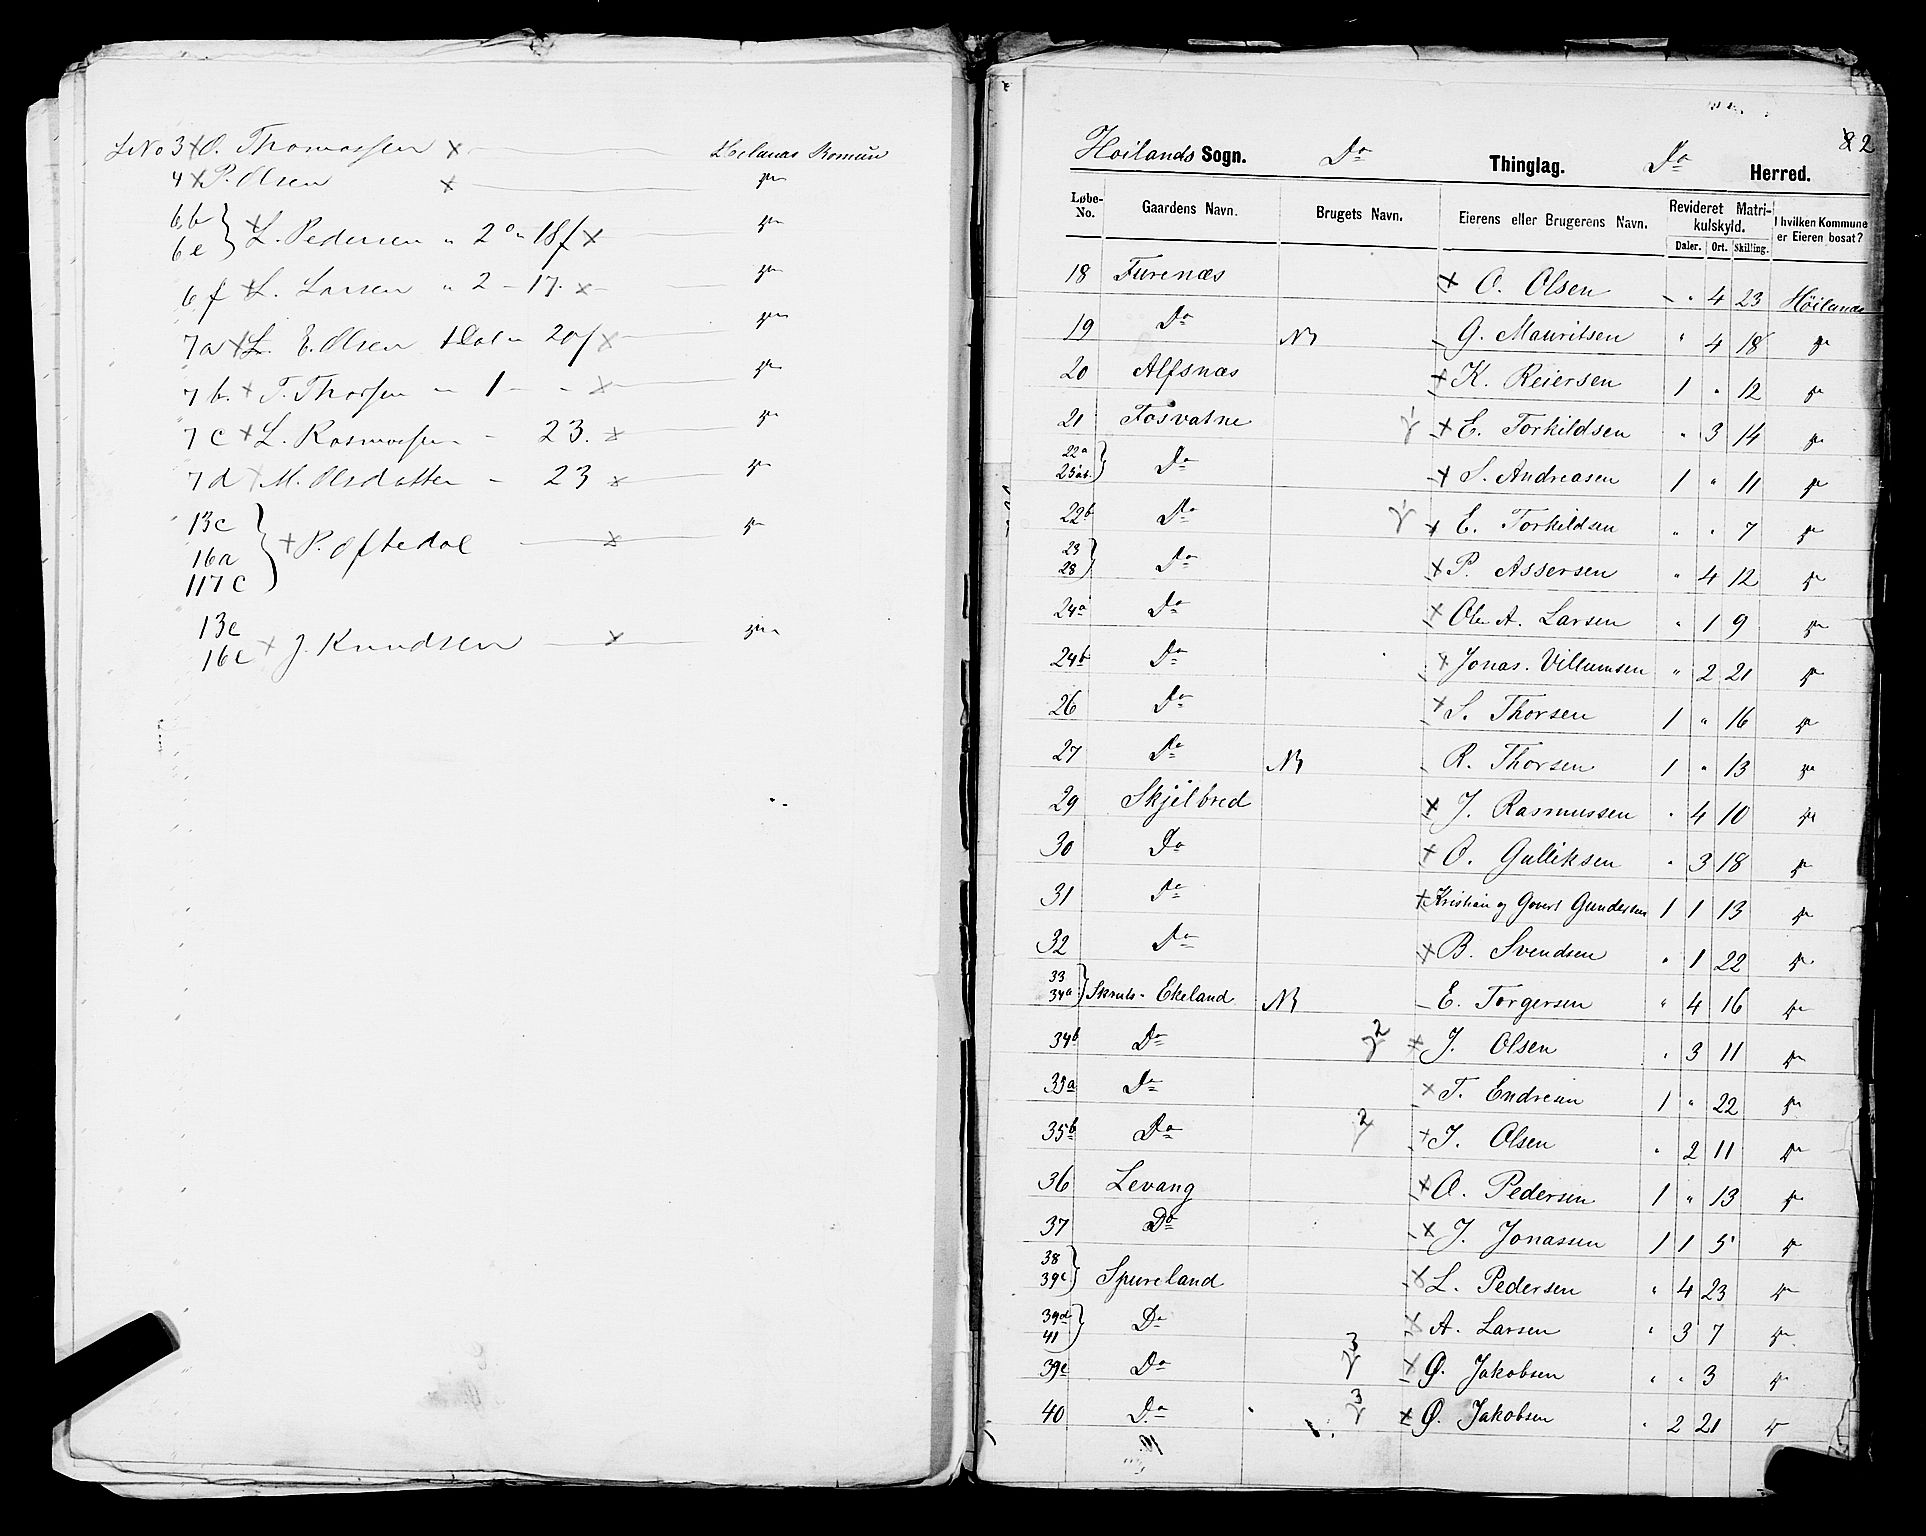 LNo 3 × O. Thomassen × — Hølands Komün
4 × P. Olsen × — "
6b } × L. Pedersen " 2 " 18 f × — "
6e
6f × L. Larsen " 2 - 17. × — "
7a × L. E. Olsen 20 f × — "
7b. × T. Thorsen — 1 - - × — "
7c × L. Rasmussen - 23. × — "
7d × M. Olsdatter - 23 × — "
13c
16a } × P. Oftedal — × — "
117c
13e
16e × J. Knudsen — × — "
82
Höilands Sogn. Do Thinglag. Do Herred.
Løbe-No. Gaardens Navn. Brugets Navn. Eierens eller Brugerens Navn. Revideret Matrikulskyld. Daler. Ort. Skilling. I hvilken Kommune er Eieren bosat?
18 Furenæs × O. Olsen " 4 23 Höilands
19 Do G. Mauritsen " 4 18 "
20 Alfsnæs × K. Reiersen 1 " 12 "
21 Fosvatne × E. Torkildsen " 3 14 "
22a 25ab } Do × S. Andreasen 1 " 11 "
22b Do × E. Torkildsen " " 7 "
23 28 } Do × P. Assersen " 4 12 "
24a Do × Ole A. Larsen " 1 9 "
24b Do × Jonas. Villumsen " 2 21 "
26 Do × S. Thorsen 1 " 16 "
27 Do R. Thorsen 1 " 13 "
29 Skjelbred × J. Rasmussen " 4 10 "
30 Do × O. Gulliksen " 3 18 "
31 Do × Kristian og Govert Gundersen 1 1 13 "
32 Do × B. Svendsen " 1 22 "
33 34a } Skruds-Ekeland E. Torgersen " 4 16 "
34b Do 2 × J. Olsen " 3 11 "
35a Do × T. Endresen 1 " 22 "
35b Do 2 × J. Olsen " 2 11 "
36 Levang × O. Pedersen 1 " 13 "
37 Do × J. Jonassen 1 1 5 "
38 39c } Spureland × L. Pedersen " 4 23 "
39d 41 } Do × A. Larsen " 3 7 "
39e Do 3 × Ø. Jakobsen " " 3 "
40 Do 3 × Ø. Jakobsen " 2 21 "